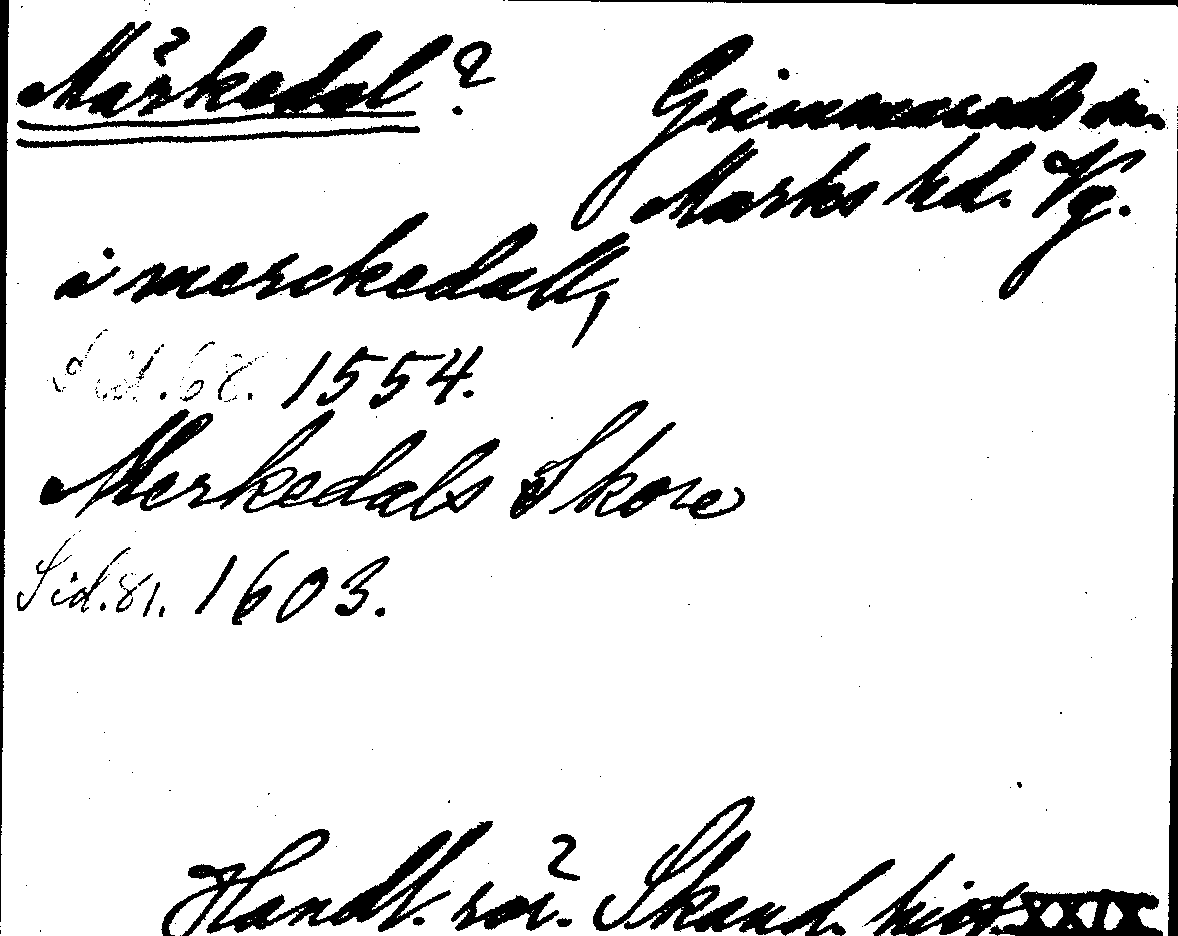 Märkedal?
Grimmareds sn.
Marks hd. Vg.
i merckedall,
Sid. 68. 1554.
Merkedals Skore
Sid. 81. 1603.
Handl. rör. Skand. hist. XXIX